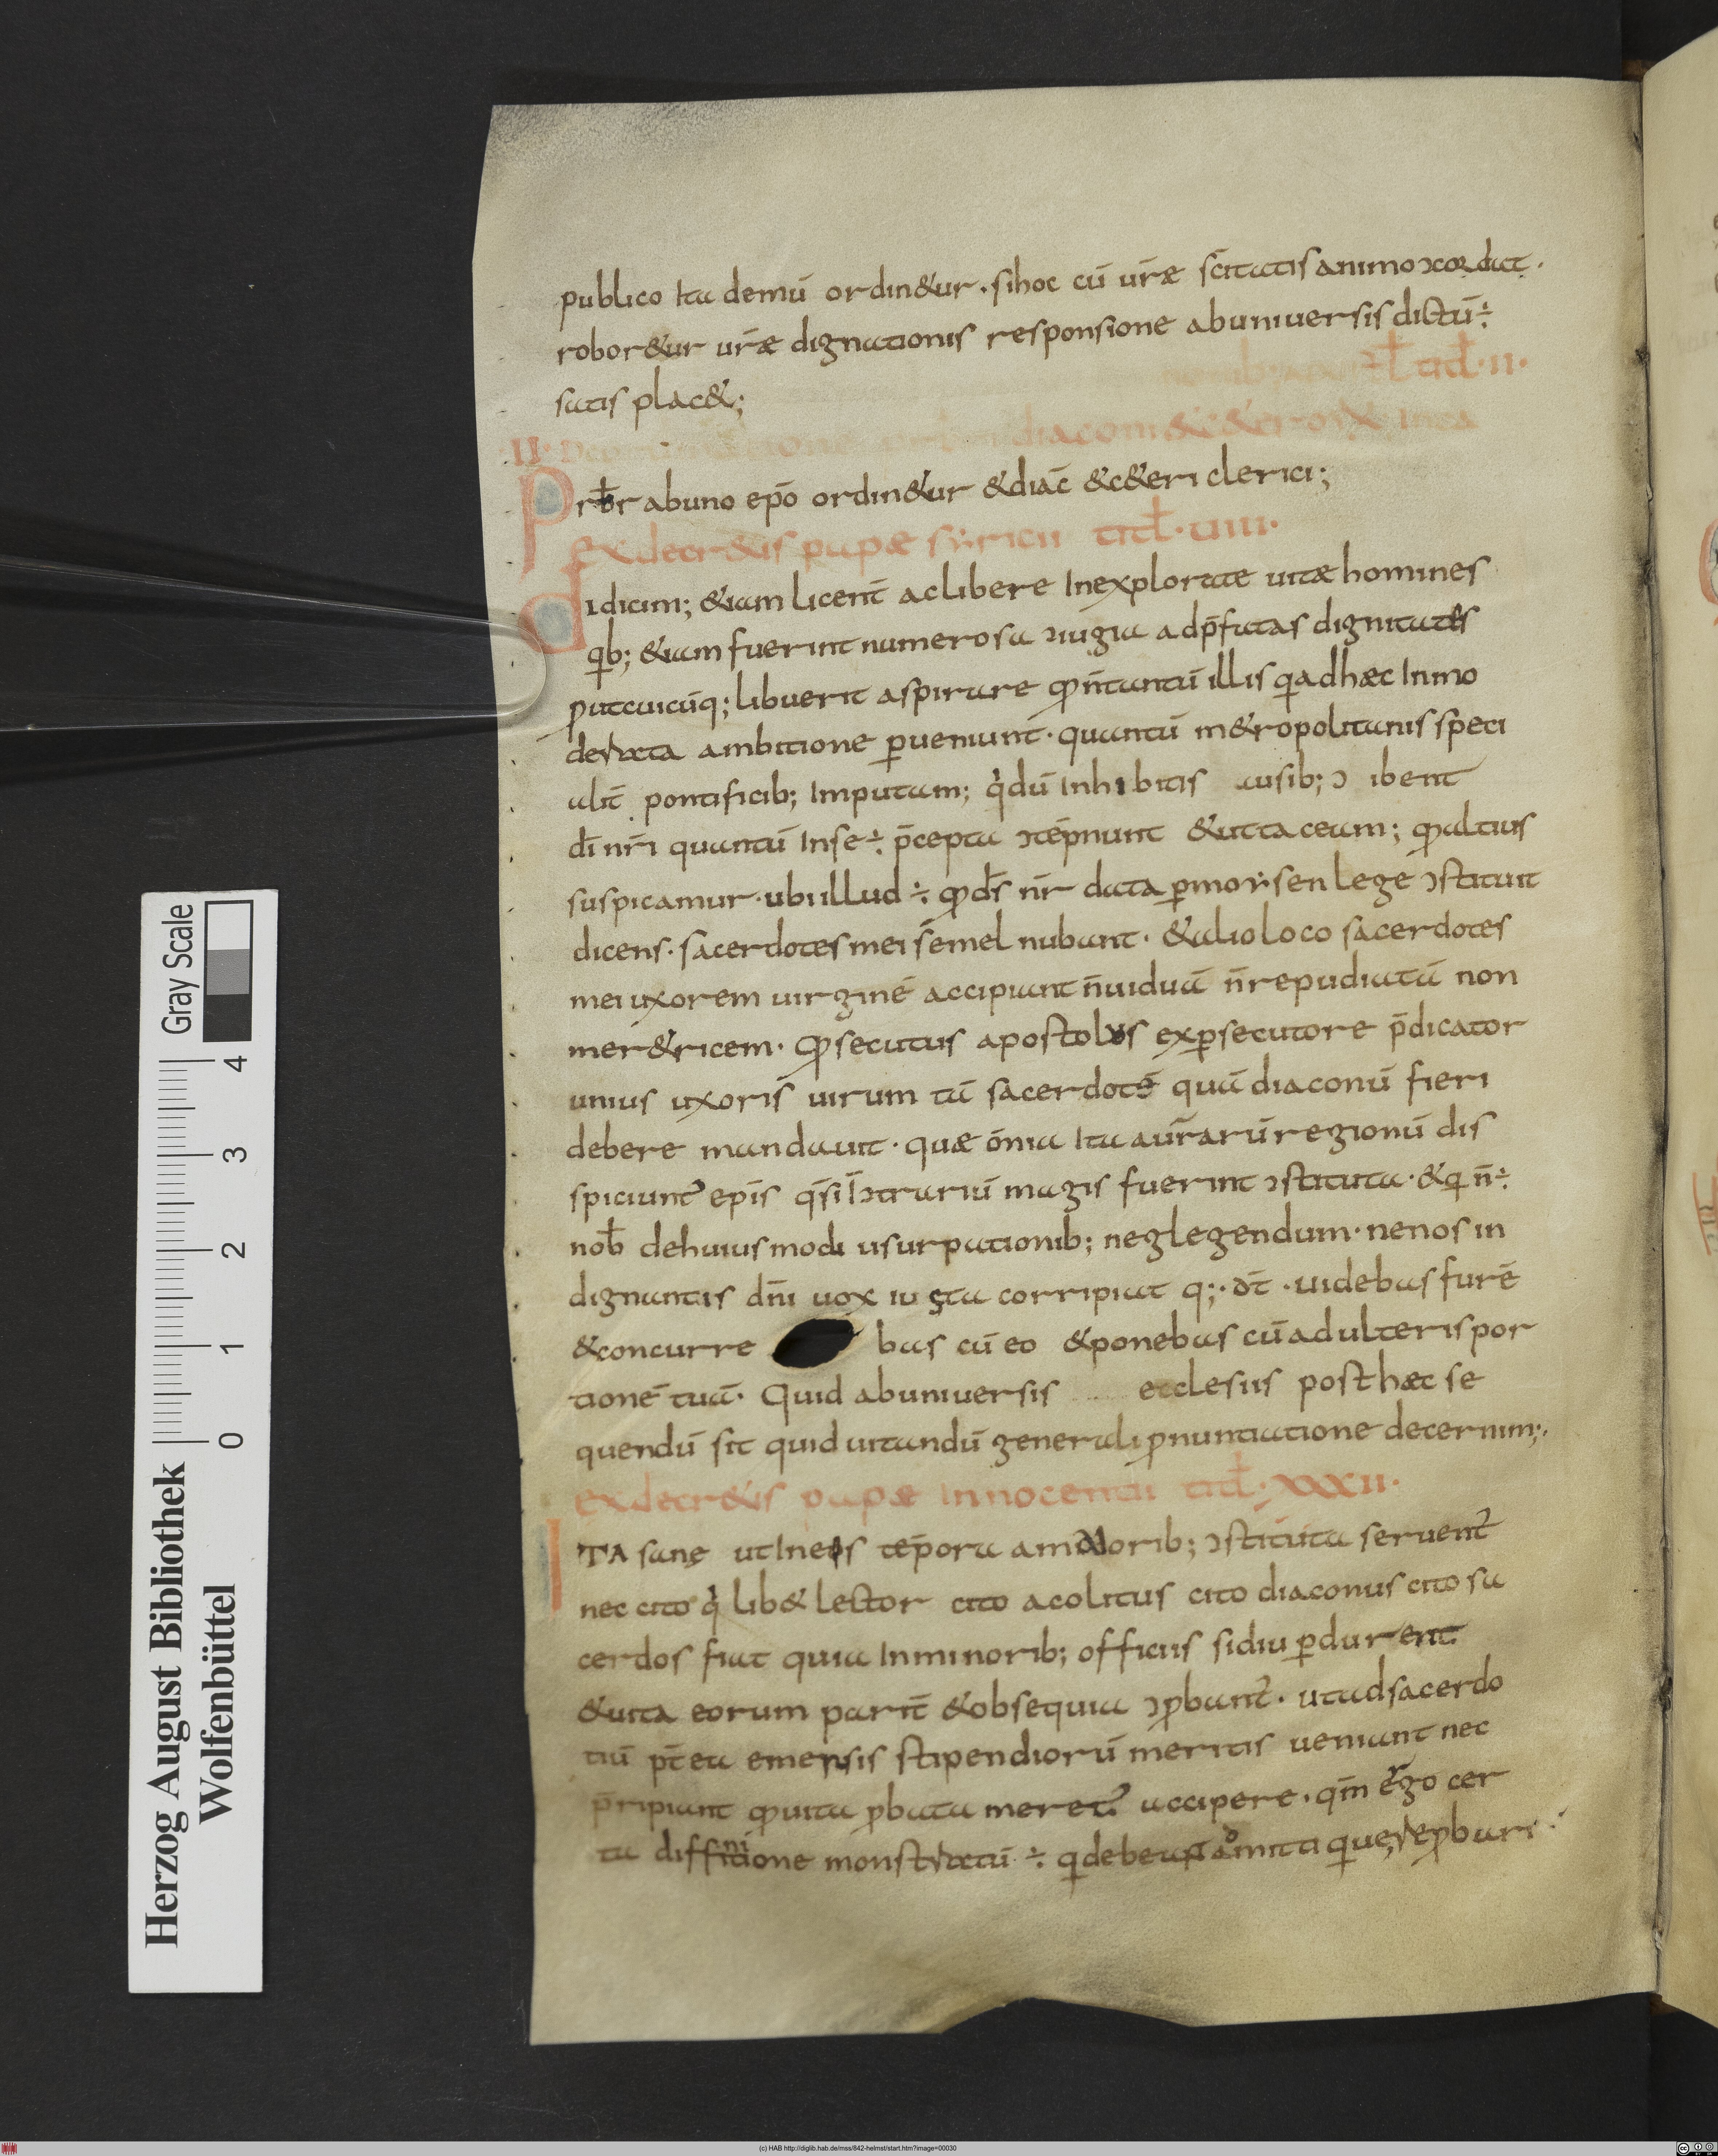 publico Ita demū ordin&ur. si hoc cū ūræ sc̄itatis animo ↄcordat.
robor&ur ūræ dignationis responsione ab uniuersis dictū ÷
satis plac&;
titl̄ · II ·
II· diaconi & c&eri
Prb̄r ab uno ep̄o ordin&ur & diac̄ & c&eri clerici;
Ex decr&is papæ syricii titl̄ · uiiii ·
didicim; &iam licent̄ ac libere Inexploratae uitæ homines
qib; &iam fuerint numerosa ↄiugia ad p̄fatas dignitates
put cuicūq; libuerit aspirare qd n̄ tantū illis qi ad hæc Inmo
derata ambitione perueniunt · quantū m&ropolitanis speci
alit̄ pontificib; Imputam; qi dū Inhibitis ausib; ↄ ibent
dī nr̄i quantū In se ÷ p̄cepta ↄtēpnunt & ut taceam; qd altius
suspicamur · ubi illud ÷ qd ds̄ nr̄ data p moysen lege ↄstituit
dicens · sacerdotes mei semel nubant · & alio loco sacerdotes
mei uxorem uirginē accipiant n̄ uiduā n̄ repudiatā non
mer&ricem · Qd secutus apostolus ex psecutore p̄dicator
unius uxoris uirum tā sacerdotē quā diaconū fieri
debere mandauit · quæ ōnia Ita a ur̄arū regionū dis
spiciunt̄ ep̄is qsi In ↄtrariū magis fuerint ↄstituta · & qi n̄ ÷
nob̄ de huiusmodi usurpationib; neglegendum · ne nos in
dignantis dn̄i uox iusta corripiat q; · dt̄ · uidebas furē
& concurre bas cū eo & ponebas cū adulteris por
tionē tuā · Quid ab uniuersis ecclesiis posthæc se
quendū sit quid uitandū generali pnuntiatione decernim; ·
ex decr&is papæ Innocentii titl̄ · XXXII ·
ITA sane ut In eos tēpora a maiorib; ↄstituta seruent̄
nec cito qi lib& lector cito acolitus cito diaconus cito sa
cerdos fiat quia In minorib; officiis si diu pdurent
& uita eorum parit̄ & obsequia ↄpbant̄ · ut ad sacerdo
tiū pt̄ea emensis stipendiorū meritis ueniant nec
p̄ripiant qd uita pbata meret̄ accipere · qm̄ ergo cer
ta diffinitione monstratū ÷ qi debeant omitti que reprobari